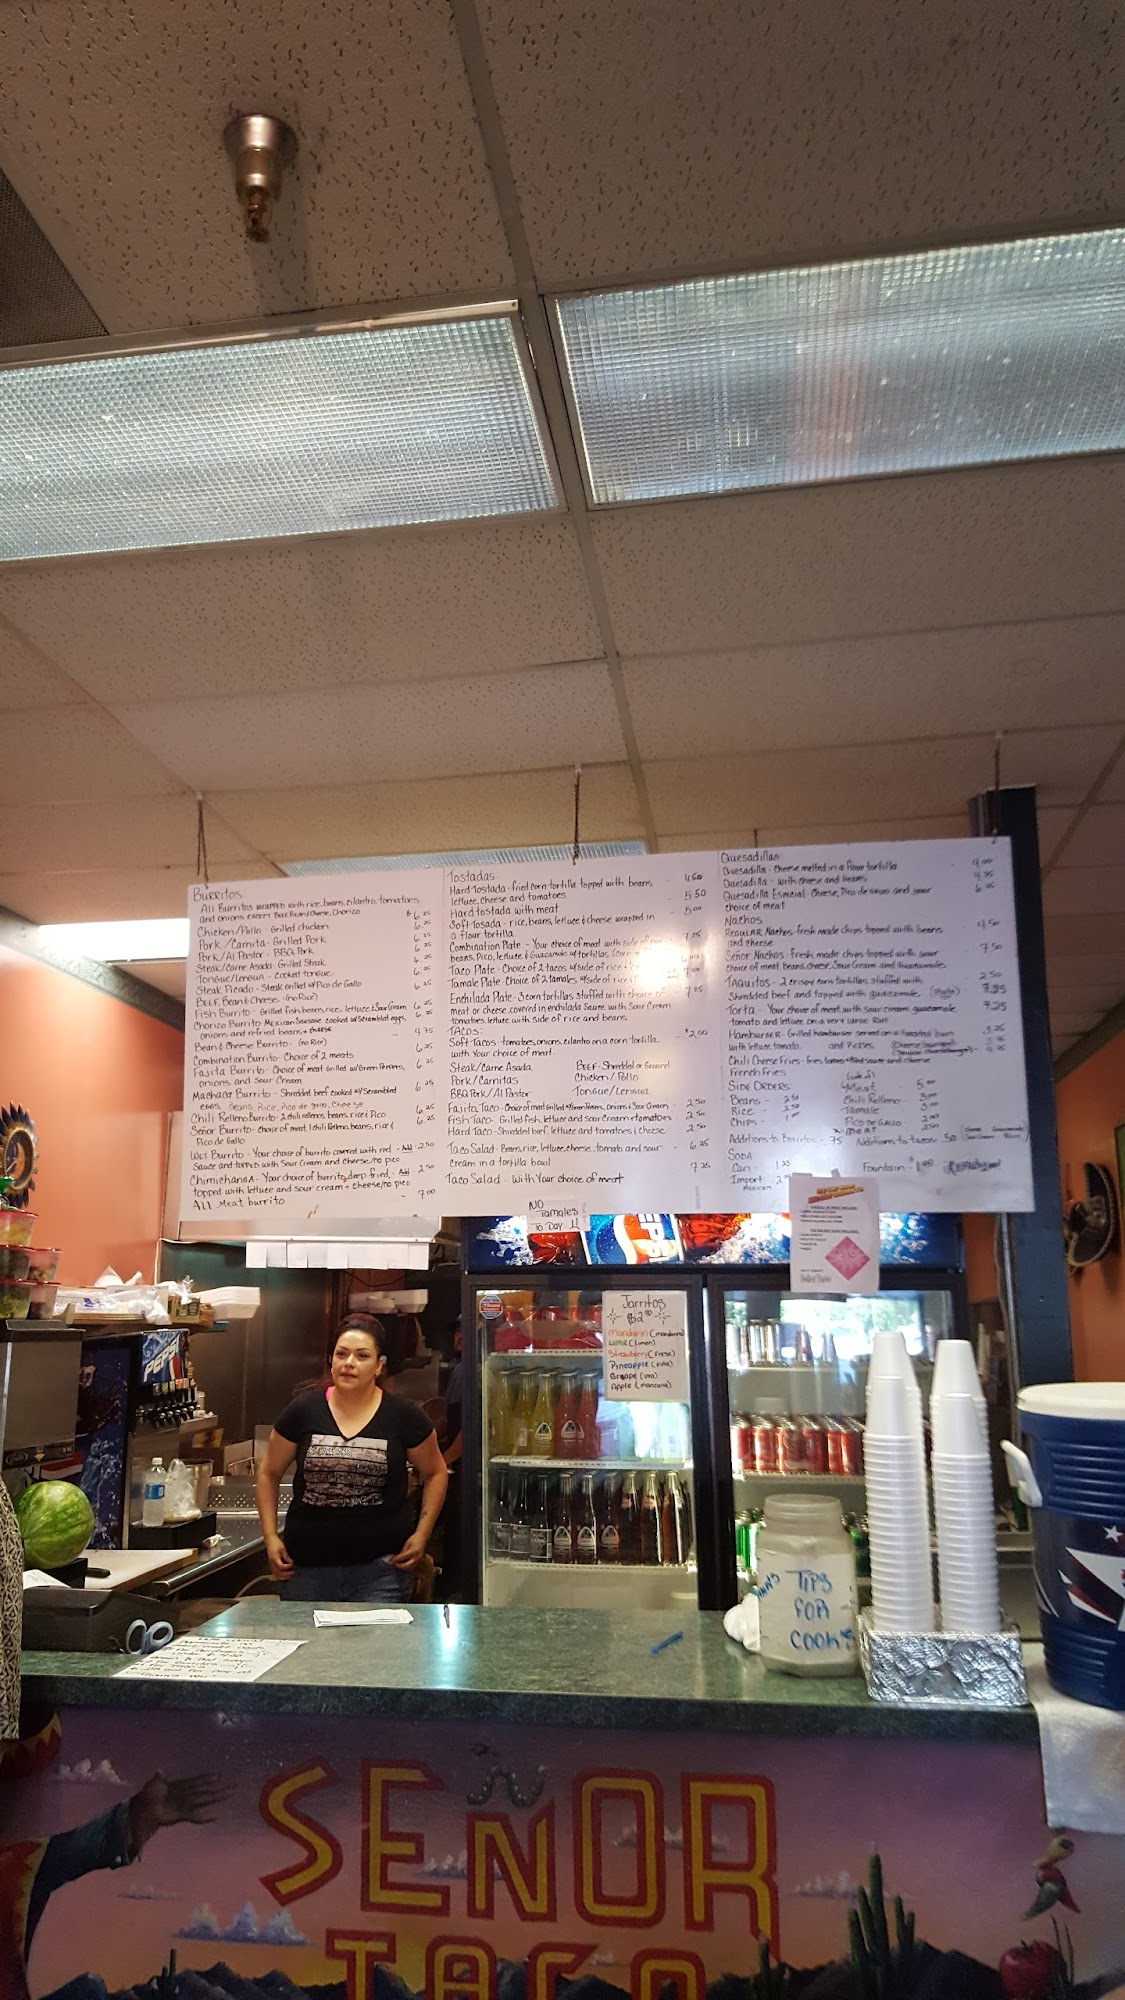 Burritos
All Burritos wrapped with rice, beans, cilantro, tomatoes
and onions except Bean & Cheese, Chorizo
Chicken/Pollo - Grilled chicken $6.25
Pork/Carnita - Grilled Pork 6.25
Pork/Al Pastor - BBQ Pork 6.25
Steak/Carne Asada - Grilled Steak 6.25
Tongue/Lengua - Cooked tongue 6.25
Steak Picado - Steak grilled w/Pico de Gallo 6.25
BEEF, Bean & Cheese - (no Rice) 6.25
Fish Burrito - Grilled fish, beans, rice, lettuce & Sour Cream 6.25
Chorizo Burrito - Mexican Sausage cooked w/Scrambled eggs, 6.25
onions and refried beans, + cheese
Bean & Cheese Burrito - (no Rice) 4.75
Combination Burrito - Choice of 2 meats 6.25
Fajita Burrito - Choice of meat Grilled w/Green Peppers, 6.25
onions and Sour Cream
Machaca Burrito - Shredded beef cooked w/Scrambled 6.25
eggs, Beans, Rice, Pico de gallo, Cheese
Chili Relleno Burrito - 2 chili rellenos, beans, rice & Pico 6.25
Señor Burrito - choice of meat, 1 chili Relleno, beans, rice & 6.25
Pico de Gallo
Wet Burrito - Your choice of burrito covered with red - Add 2.50
Sauce and topped with Sour Cream and cheese/no pico
Chimichanga - Your choice of burrito deep fried, - Add - 2.50
topped with lettuce and sour cream + cheese/no pico
All Meat burrito - 7.00
Tostadas
Hard Tostada - fried corn tortilla topped with beans - 4.50
lettuce, cheese and tomatoes
Hard tostada with meat - 5.50
Soft Tosada - rice, beans, lettuce & cheese wrapped in - 5.00
a flour tortilla
Combination Plate - Your choice of meat with side of - 7.25
beans, Pico, lettuce & Guacamole w/tortillas
Taco Plate - Choice of 2 tacos w/side of rice +
Tamale Plate - Choice of 2 tamales w/side of rice 7.00
Enchilada Plate - 3 corn tortillas stuffed with - 7.25
meat or cheese, covered in enchilada Sauce with Sour Cream
tomatoes, lettuce with side of rice and beans
TACOS:
Soft Tacos - tomatoes, onions, cilantro on a corn tortilla - $2.00
with Your choice of meat.
Steak/Carne Asada BEEF - Shredded or Ground
Pork/Carnitas Chicken/Pollo
BBQ Pork/Al Pastor Tongue/Lengua
Fajita Taco - Choice of meat Grilled w/Green Peppers, Onions & Sour Cream - 2.50
Fish Taco - Grilled fish, lettuce and sour cream + tomatoes - 2.50
Hard Taco - Shredded beef, lettuce and tomatoes & cheese 2.50
Taco Salad - Beans, rice, lettuce, cheese, tomato and sour - 6.25
cream in a tortilla bowl
Taco Salad - With Your choice of meat 7.25
Quesadillas
Quesadilla - Cheese melted in a flour tortilla - 4.00
Quesadilla - with cheese and beans
Quesadilla Especial - Cheese, Pico de Gallo and your
choice of meat
Nachos
Regular Nachos - fresh made chips topped with beans - 4.50
and cheese
Señor Nachos - fresh made chips topped with your - 7.50
choice of meat, beans, cheese, Sour Cream and Guacamole
Taquitos - 2 crispy corn tortillas stuffed with 2.50
Shredded beef and topped with guacamole (Plate) 7.25
Torta - Your choice of meat with sour cream, guacamole 7.25
tomato and lettuce on a
Hamburger - Grilled hamburger served on a toasted bun
with lettuce, tomato and Pickles
Chili Cheese Fries
French Fries
SIDE ORDERS
Beans - 2.50 Meat - 5.00
Rice - 2.50 Chili Relleno - 3.00
Chips - 1.00 Tamale - 3.00
Pico de Gallo 2.00
Additions to Burritos - .75 Additions to tacos .50
SODA
Can - 1.25 Fountain -
Import - 2
Mexican
NO
Tamales
To Day
Jarritos
$2.00
Mandarin (mandarina)
Lime (limon)
Strawberry (fresa)
Pineapple (piña)
Grape (uva)
Apple (manzana)
PEPSI
PEPSI
TIPS
FOR
COOKS
SEÑOR
TACO